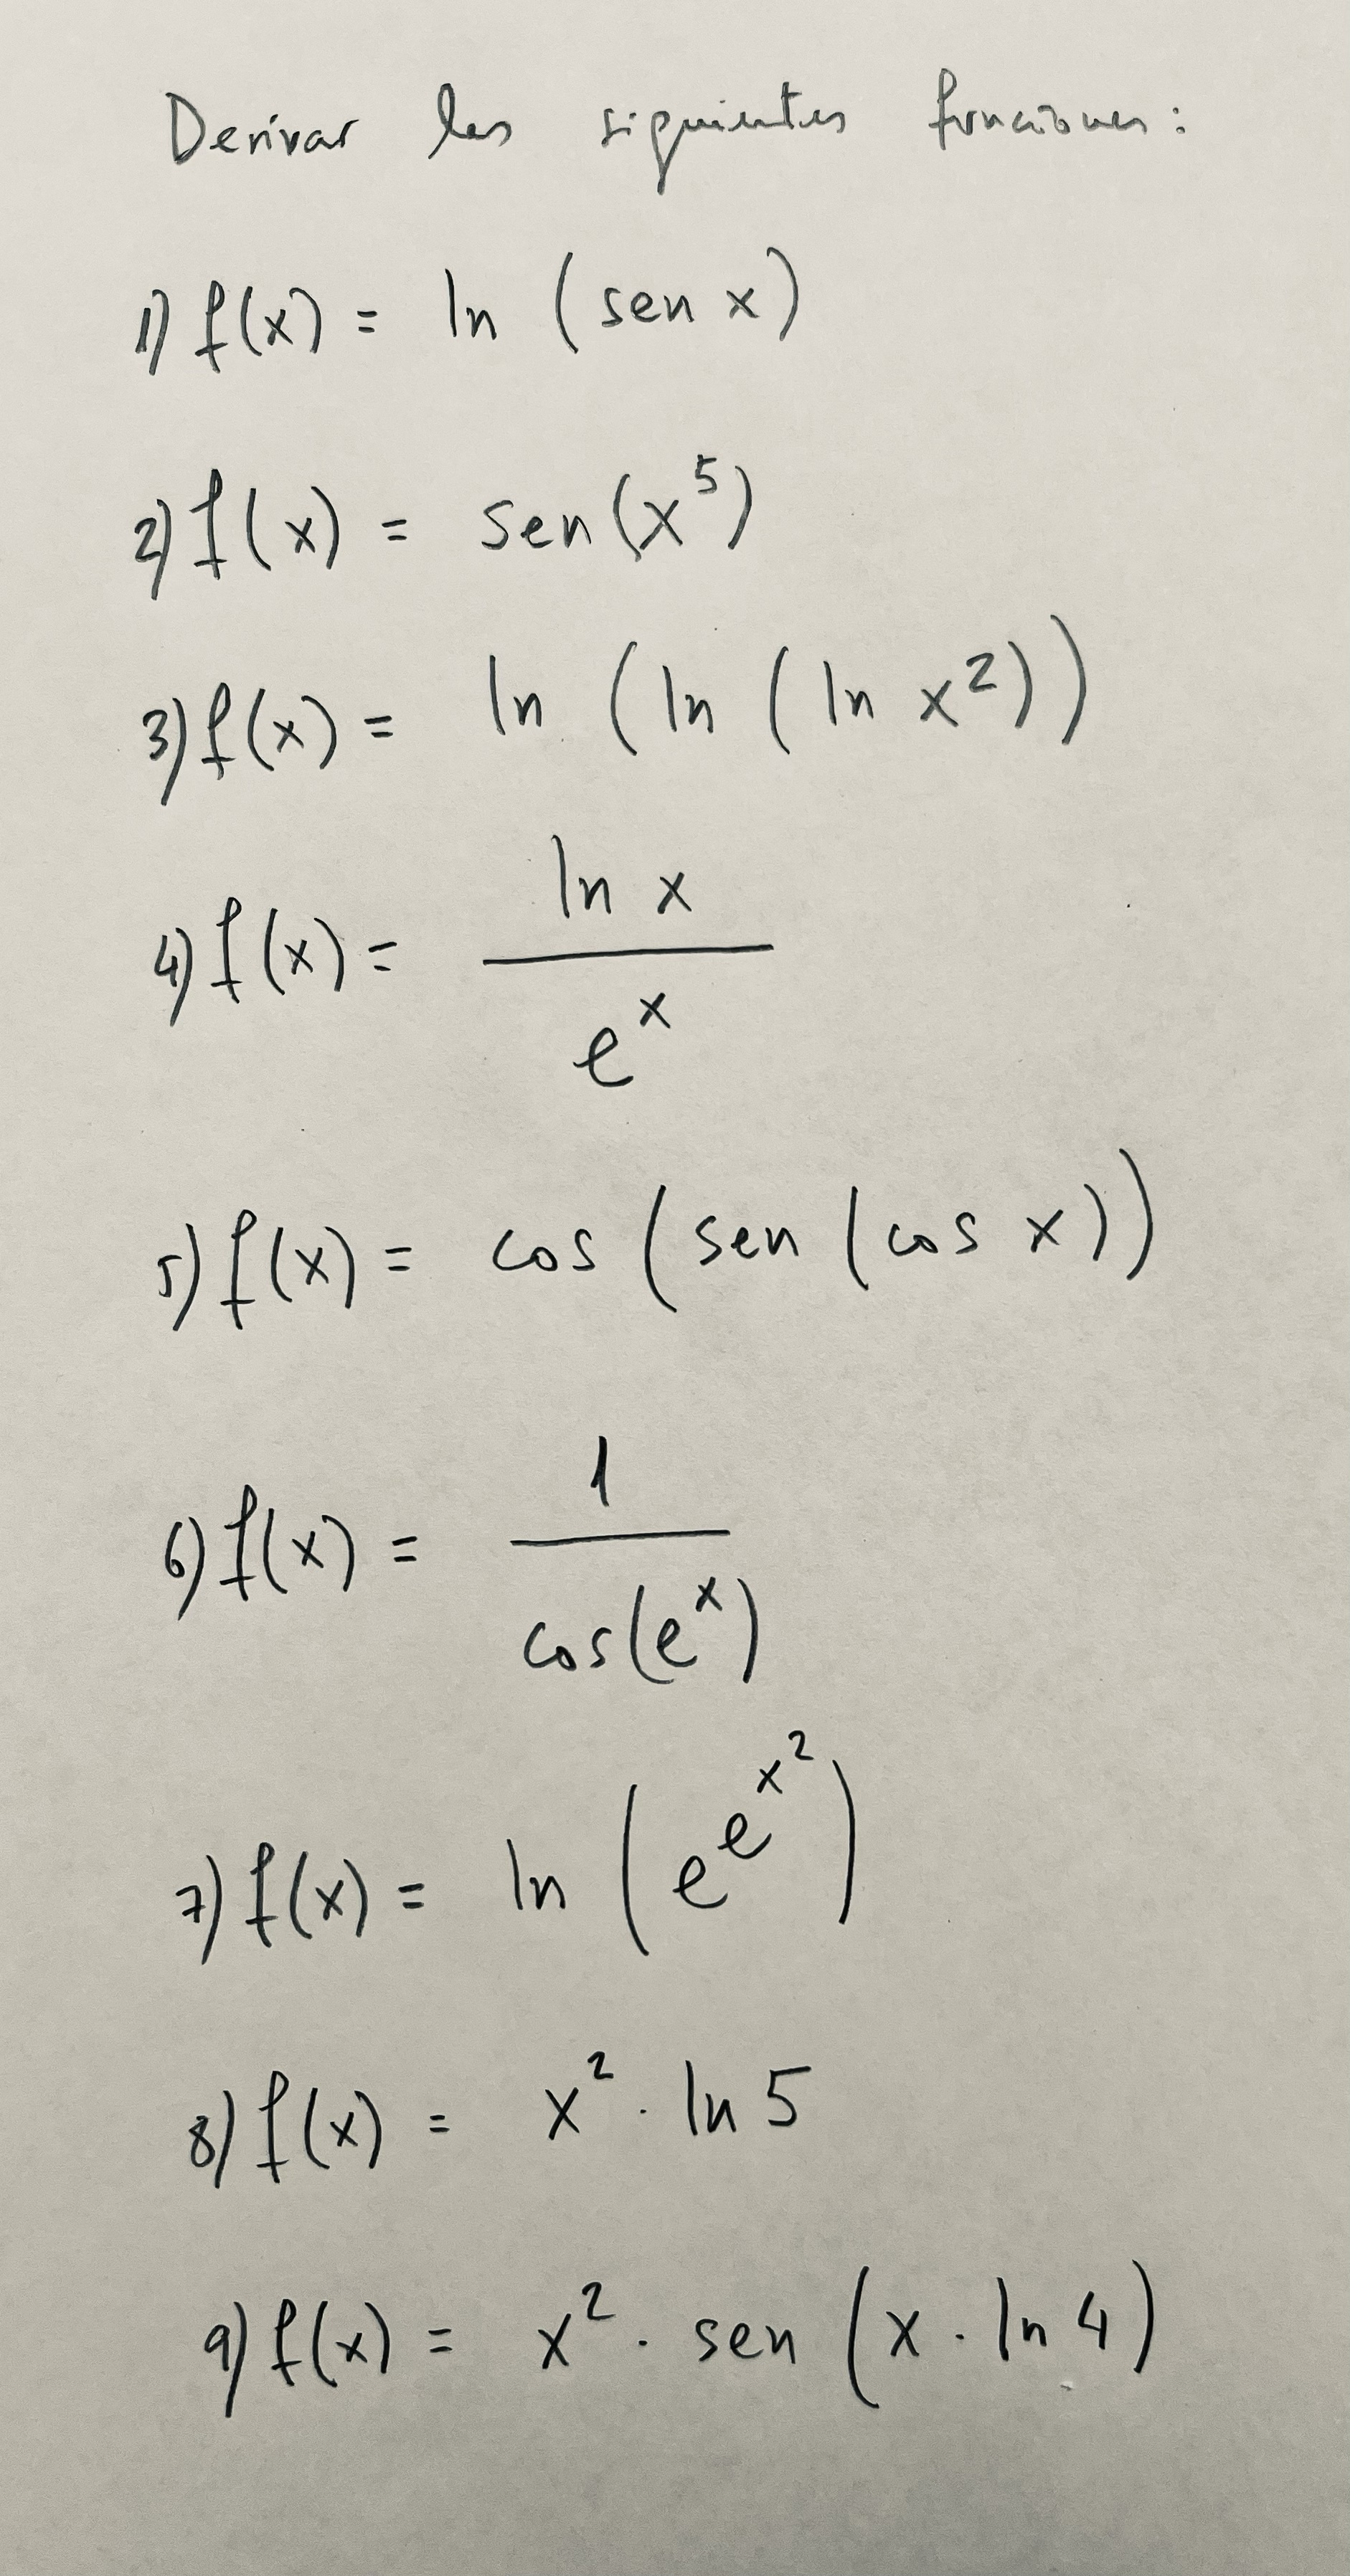 Derivar las siguientes funciones:
1) f(x) = ln (sen x)
2) f(x) = sen(x⁵)
3) f(x) = ln (ln (ln x²))
4) f(x) = ln x / eˣ
5) f(x) = cos (sen (cos x))
6) f(x) = 1 / cos(eˣ)
7) f(x) = ln (e^(e^(x²)))
8) f(x) = x² · ln 5
9) f(x) = x² · sen (x · ln 4)